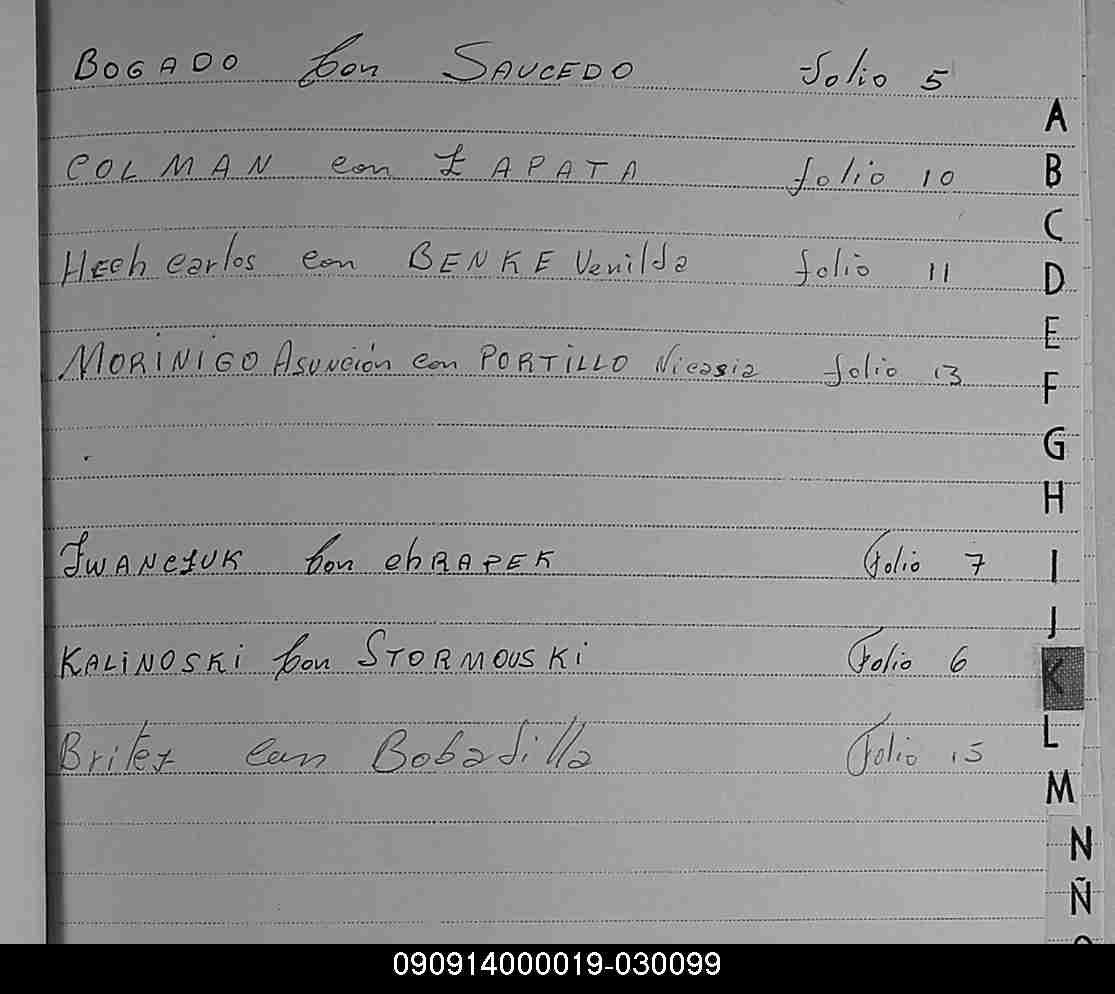 BOGADO con SAUCEDO folio 5
COLMAN con ZAPATA folio 10
Hech Carlos con BENKE Venilda folio 11
MORINIGO Asunción con PORTILLO Nicasia folio 13
IWANCZUK con chRAPEK Folio 7
KALINOSKI con STORMOUSKI Folio 6
Britez con Bobadilla Folio 15
A
B
C
D
E
F
G
H
I
J
K
L
M
N
Ñ
090914000019-030099